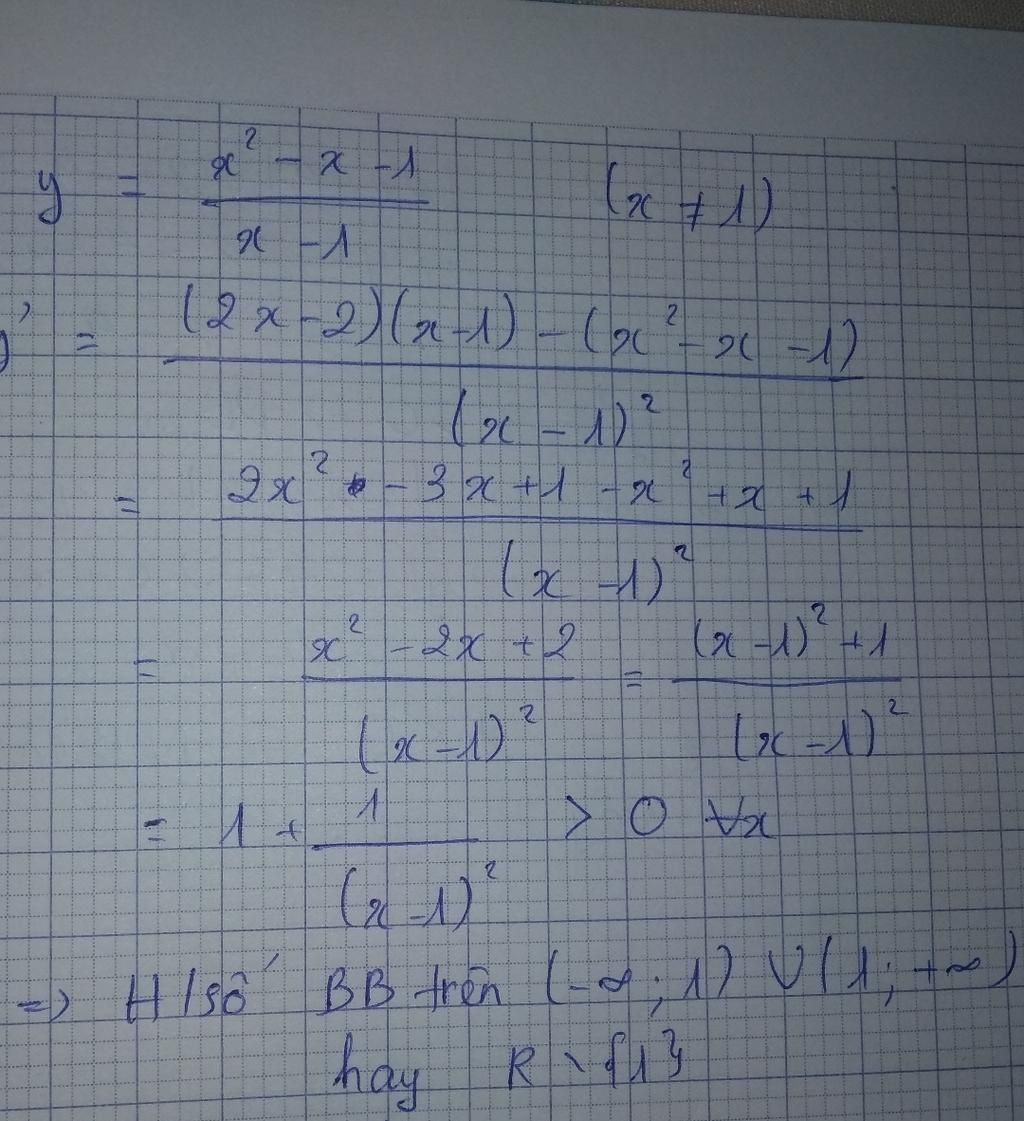 y = (x² - x - 1)/(x - 1) (x ≠ 1)
y' = ((2x - 2)(x - 1) - (x² - x - 1))/(x - 1)²
= (2x² - 3x + 1 - x² + x + 1)/(x - 1)²
= (x² - 2x + 2)/(x - 1)² = ((x - 1)² + 1)/(x - 1)²
= 1 + 1/(x - 1)² > 0 ∀x
=> H/số ĐB trên (-∞; 1) ∪ (1; +∞)
hay R \ {1}